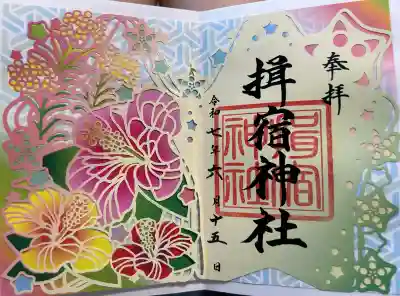 奉拝
揖宿神社
令和七年六月十五日